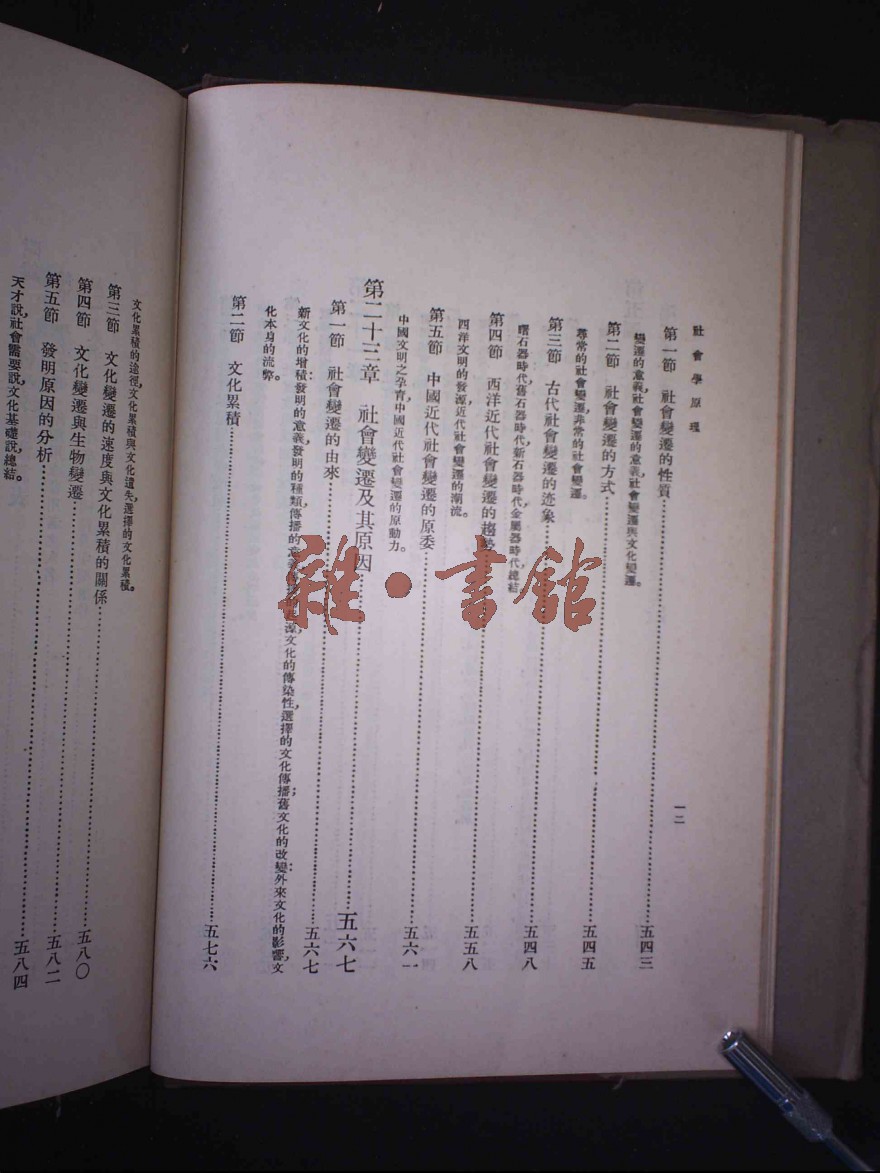 社會學原理
第一節 社會變遷的性質……五四三
變遷的意義,社會變遷的意義,社會變遷與文化變遷。
第二節 社會變遷的方式……五四五
尋常的社會變遷,非常的社會變遷。
第三節 古代社會變遷的迹象……五四八
曙石器時代,舊石器時代,新石器時代,金屬器時代,總結
第四節 西洋近代社會變遷的趨勢……五五八
西洋文明的發源,近代社會變遷的潮流。
第五節 中國近代社會變遷的原委……五六一
中國文明之孕育,中國近代社會變遷的原動力。
第二十三章 社會變遷及其原因……五六七
第一節 社會變遷的由來……五六七
新文化的增積:發明的意義,發明的種類,傳播的意義,文化的傳染性,選擇的文化傳播;舊文化的改變:外來文化的影響,文
化本身的流弊。
第二節 文化累積……五七六
一二
文化累積的途徑,文化累積與文化遺失,選擇的文化累積。
第三節 文化變遷的速度與文化累積的關係……五八〇
第四節 文化變遷與生物變遷……五八二
第五節 發明原因的分析……五八四
天才說,社會需要說,文化基礎說,總結。
雜·書館